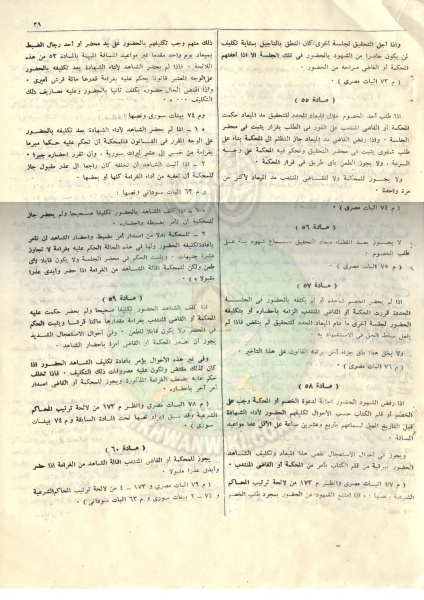 ٣٩
واذا أجل التحقيق لجلسة أخرى كان النطق بالتأجيل بمثابة تكليف
لمن يكون حاضرا من الشهود بالحضور في تلك الجلسة الا اذا أعفتهم
المحكمة أو القاضى صراحة من الحضور ٠
( م ٧٣ اثبات مصرى )
( مادة ٥٥ )
اذا طلب أحد الخصوم خلال الميعاد المحدد للتحقيق مد الميعاد حكمت
المحكمة أو القاضى المنتدب على الفور فى الطلب بقرار يثبت فى محضر
الجلسة ٠ واذا رفض القاضى مد الميعاد جاز التظلم الى المحكمة بناء على
طلب شفوى يثبت فى محضر التحقيق وتحكم فيه المحكمة على وجه
السرعة ٠ ولا يجوز الطعن بأى طريق فى قرار المحكمة ٠
ولا يجوز للمحكمة ولا للقاضى المنتدب مد الميعاد لأكثر من
مرة واحدة ٠
( م ٧٤ اثبات مصرى )
( مادة ٥٦ )
لا يجوز بعد انقضاء ميعاد التحقيق سماع شهود بناء على
طلب الخصوم ٠
( م ٧٥ اثبات مصرى )
( مادة ٥٧ )
اذا لم يحضر الخصم شاهده أو لم يكلفه بالحضور فى الجلسة
المحددة قررت المحكمة أو القاضى المنتدب الزامه باحضاره أو بتكليفه
الحضور لجلسة أخرى ما دام الميعاد المحدد للتحقيق لم ينقض فاذا لم
يفعل سقط الحق فى الاستشهاد به ٠
ولا يخل هذا بأى جزاء آخر يرتبه القانون على هذا التأخير ٠
( م ٧٦ اثبات مصرى )
( مادة ٥٨ )
اذا رفض الشهود الحضور اجابة لدعوة الخصم أو المحكمة وجب على
الخصم أو قلم الكتاب حسب الأحوال تكليفهم الحضور لأداء الشهادة
قبل التاريخ المعين لسماعهم بأربع وعشرين ساعة على الأقل عدا مواعيد
المسافة ٠
ويجوز فى أحوال الاستعجال نقص هذا الميعاد وتكليف الشاهد
الحضور ببرقية من قلم الكتاب بأمر من المحكمة أو القاضى المنتدب ٠
( م ٧٧ اثبات مصرى وانظر م ١٧٣ من لائحة ترتيب المحاكم
الشرعية ونصها : واذا امتنع الشهود عن الحضور بمجرد طلب الخصم
ذلك منهم وجب تكليفهم بالحضور على يد محضر أو أحد رجال الضبط
بميعاد يوم واحد مقدما غير مواعيد المسافة المبينة بالمادة ٥٣ من هذه
اللائحة ٠ فاذا لم يحضر الشاهد لأداء الشهادة بعد تكليفه بالحضور
على الوجه المعتبر قانونا يحكم عليه بغرامة قدرها مائة قرش أميرى ٠
واذا اقتضى الحال حضوره يكلف ثانيا بالحضور وعليه مصاريف ذلك
التكليف ٠٠٠ ٠
وم ٧٤ بينات سورى ونصها :
٠ ١ ــ اذا لم يحضر الشاهد لأداء الشهادة بعد تكليفه بالحضور
على الوجه المقرر فى القانون فللمحكمة أن تحكم عليه حكما مبرما
بغرامة من خمس الى عشر ليرات سورية ٠ وأن تقرر احضاره جبرا ٠
٢ ــ اذا أثبت الشاهد أن تخلفه كان راجعا الى عذر مقبول جاز
للمحكمة أن تعفيه من أداء الغرامة كلها أو بعضها ٠
و م ٦٣ اثبات سودانى ونصها :
٠ ١ ــ اذا كلف الشاهد بالحضور تكليفا صحيحا ولم يحضر جاز
للمحكمة أن تأمر بضبطه واحضاره ٠
٢ ــ للمحكمة بدلا من اصدار أمر بضبط واحضار الشاهد أن تأمر
باعادة تكليفه الحضور ولها فى هذه الحالة الحكم عليه بغرامة لا تجاوز
عشرة جنيهات ٠ ويثبت الحكم فى محضر الجلسة ولا يكون قابلا لأى
طعن ولكن للمحكمة اقالة الشاهد من الغرامة اذا حضر وأبدى عذرا
مقبولا ٠ )
( مادة ٥٩ )
اذا كلف الشاهد الحضور تكليفا صحيحا ولم يحضر حكمت عليه
المحكمة أو القاضى المنتدب بغرامة مقدارها مائتا قرشا ويثبت الحكم
فى المحضر ولا يكون قابلا للطعن ٠ وفى أحوال الاستعجال الشديد
يجوز أن تصدر المحكمة أو القاضى أمرا باحضار الشاهد ٠
وفى غير هذه الأحوال يؤمر باعادة تكليف الشاهد الحضور اذا
كان لذلك مقتض وتكون عليه مصروفات ذلك التكليف ٠ فاذا تخلف
حكم عليه بضعف الغرامة المذكورة ويجوز للمحكمة أو القاضى اصدار
أمر آخر باحضاره ٠
( م ٧٨ اثبات مصرى وانظر م ١٧٣ من لائحة ترتيب المحاكم
الشرعية وقد سبق ايراد نصها تحت المادة السابقة و م ٧٤ بينات
سورى ) ٠
( مادة ٦٠ )
يجوز للمحكمة أو القاضى المنتدب اقالة الشاهد من الغرامة اذا حضر
وأبدى عذرا مقبولا ٠
( م ٦٩ اثبات مصرى و ١٧٣ ــ ٤ من لائحة ترتيب المحاكم الشرعية
و ٧٤ ــ ٢ بينات سورى و م ٦٣ اثبات سودانى ) ٠